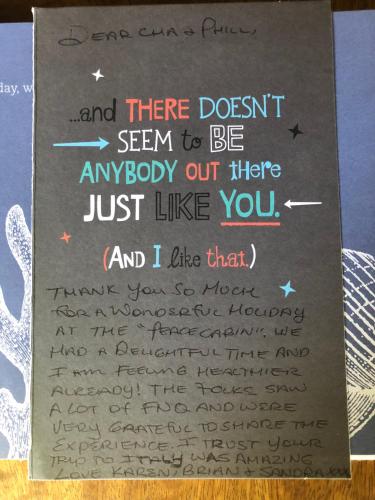 DEAR CHA & PHILL,
day, w
...and THERE DOESN'T
SEEM to BE
ANYBODY OUT there
JUST LIKE YOU.
(AND I like that.)
THANK YOU SO MUCH
FOR A WONDERFUL HOLIDAY
AT THE "PEACECABIN". WE
HAD A DELIGHTFUL TIME AND
I AM FEELING HEALTHIER
ALREADY! THE FOLKS SAW
A LOT OF FNQ AND WERE
VERY GRATEFUL TO SHARE THE
EXPERIENCE. I TRUST YOUR
TRIP TO ITALY WAS AMAZING
LOVE KAREN, BRIAN & SANDRA xxx